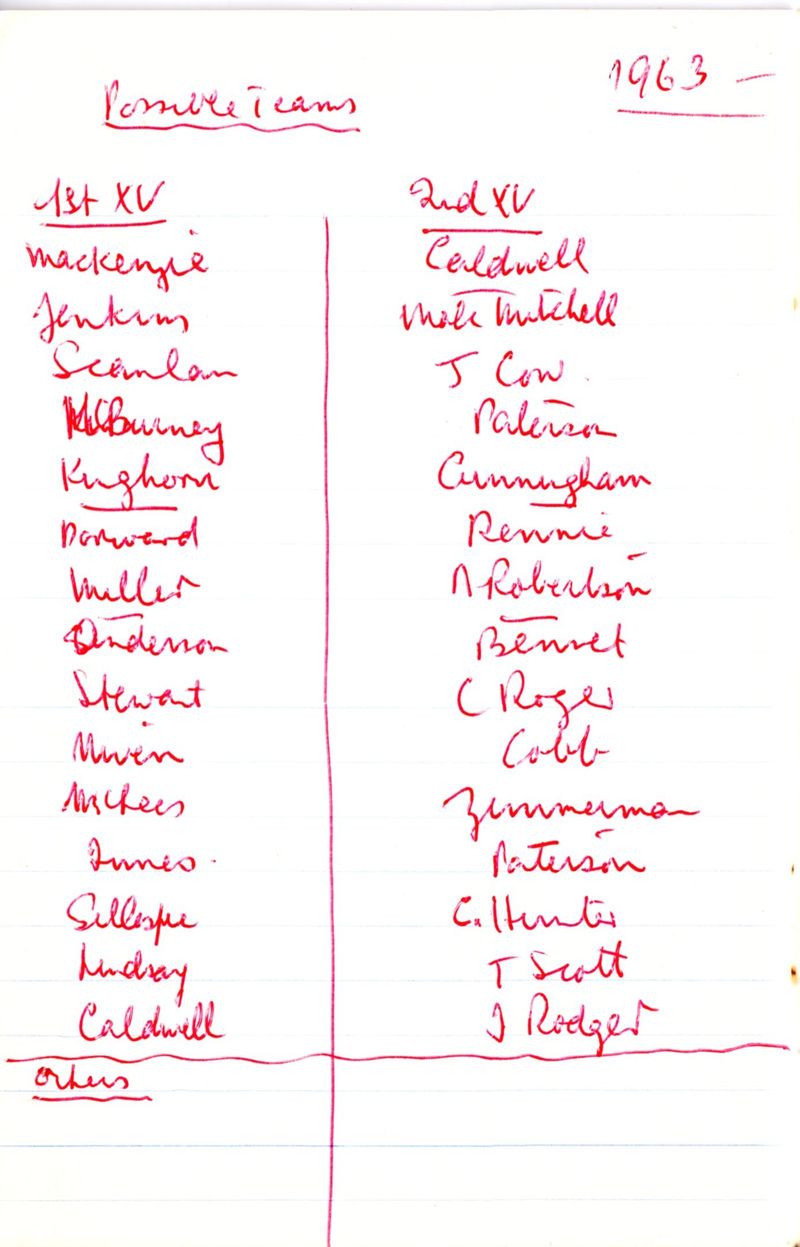 1963 –
Possible Teams
1st XV
Mackenzie
Jenkins
Scanlan
McBurney
Kinghorn
Dorward
Miller
Anderson
Stewart
Niven
McLees
Innes.
Gillespie
Lindsay
Caldwell
Others
2nd XV
Caldwell
Mitchell
J Cow.
Paterson
Cunningham
Rennie
Robertson
Bennet
C Roger
Cobb
Zimmerman
Paterson
C. Hunter
T Scott
J Rodger